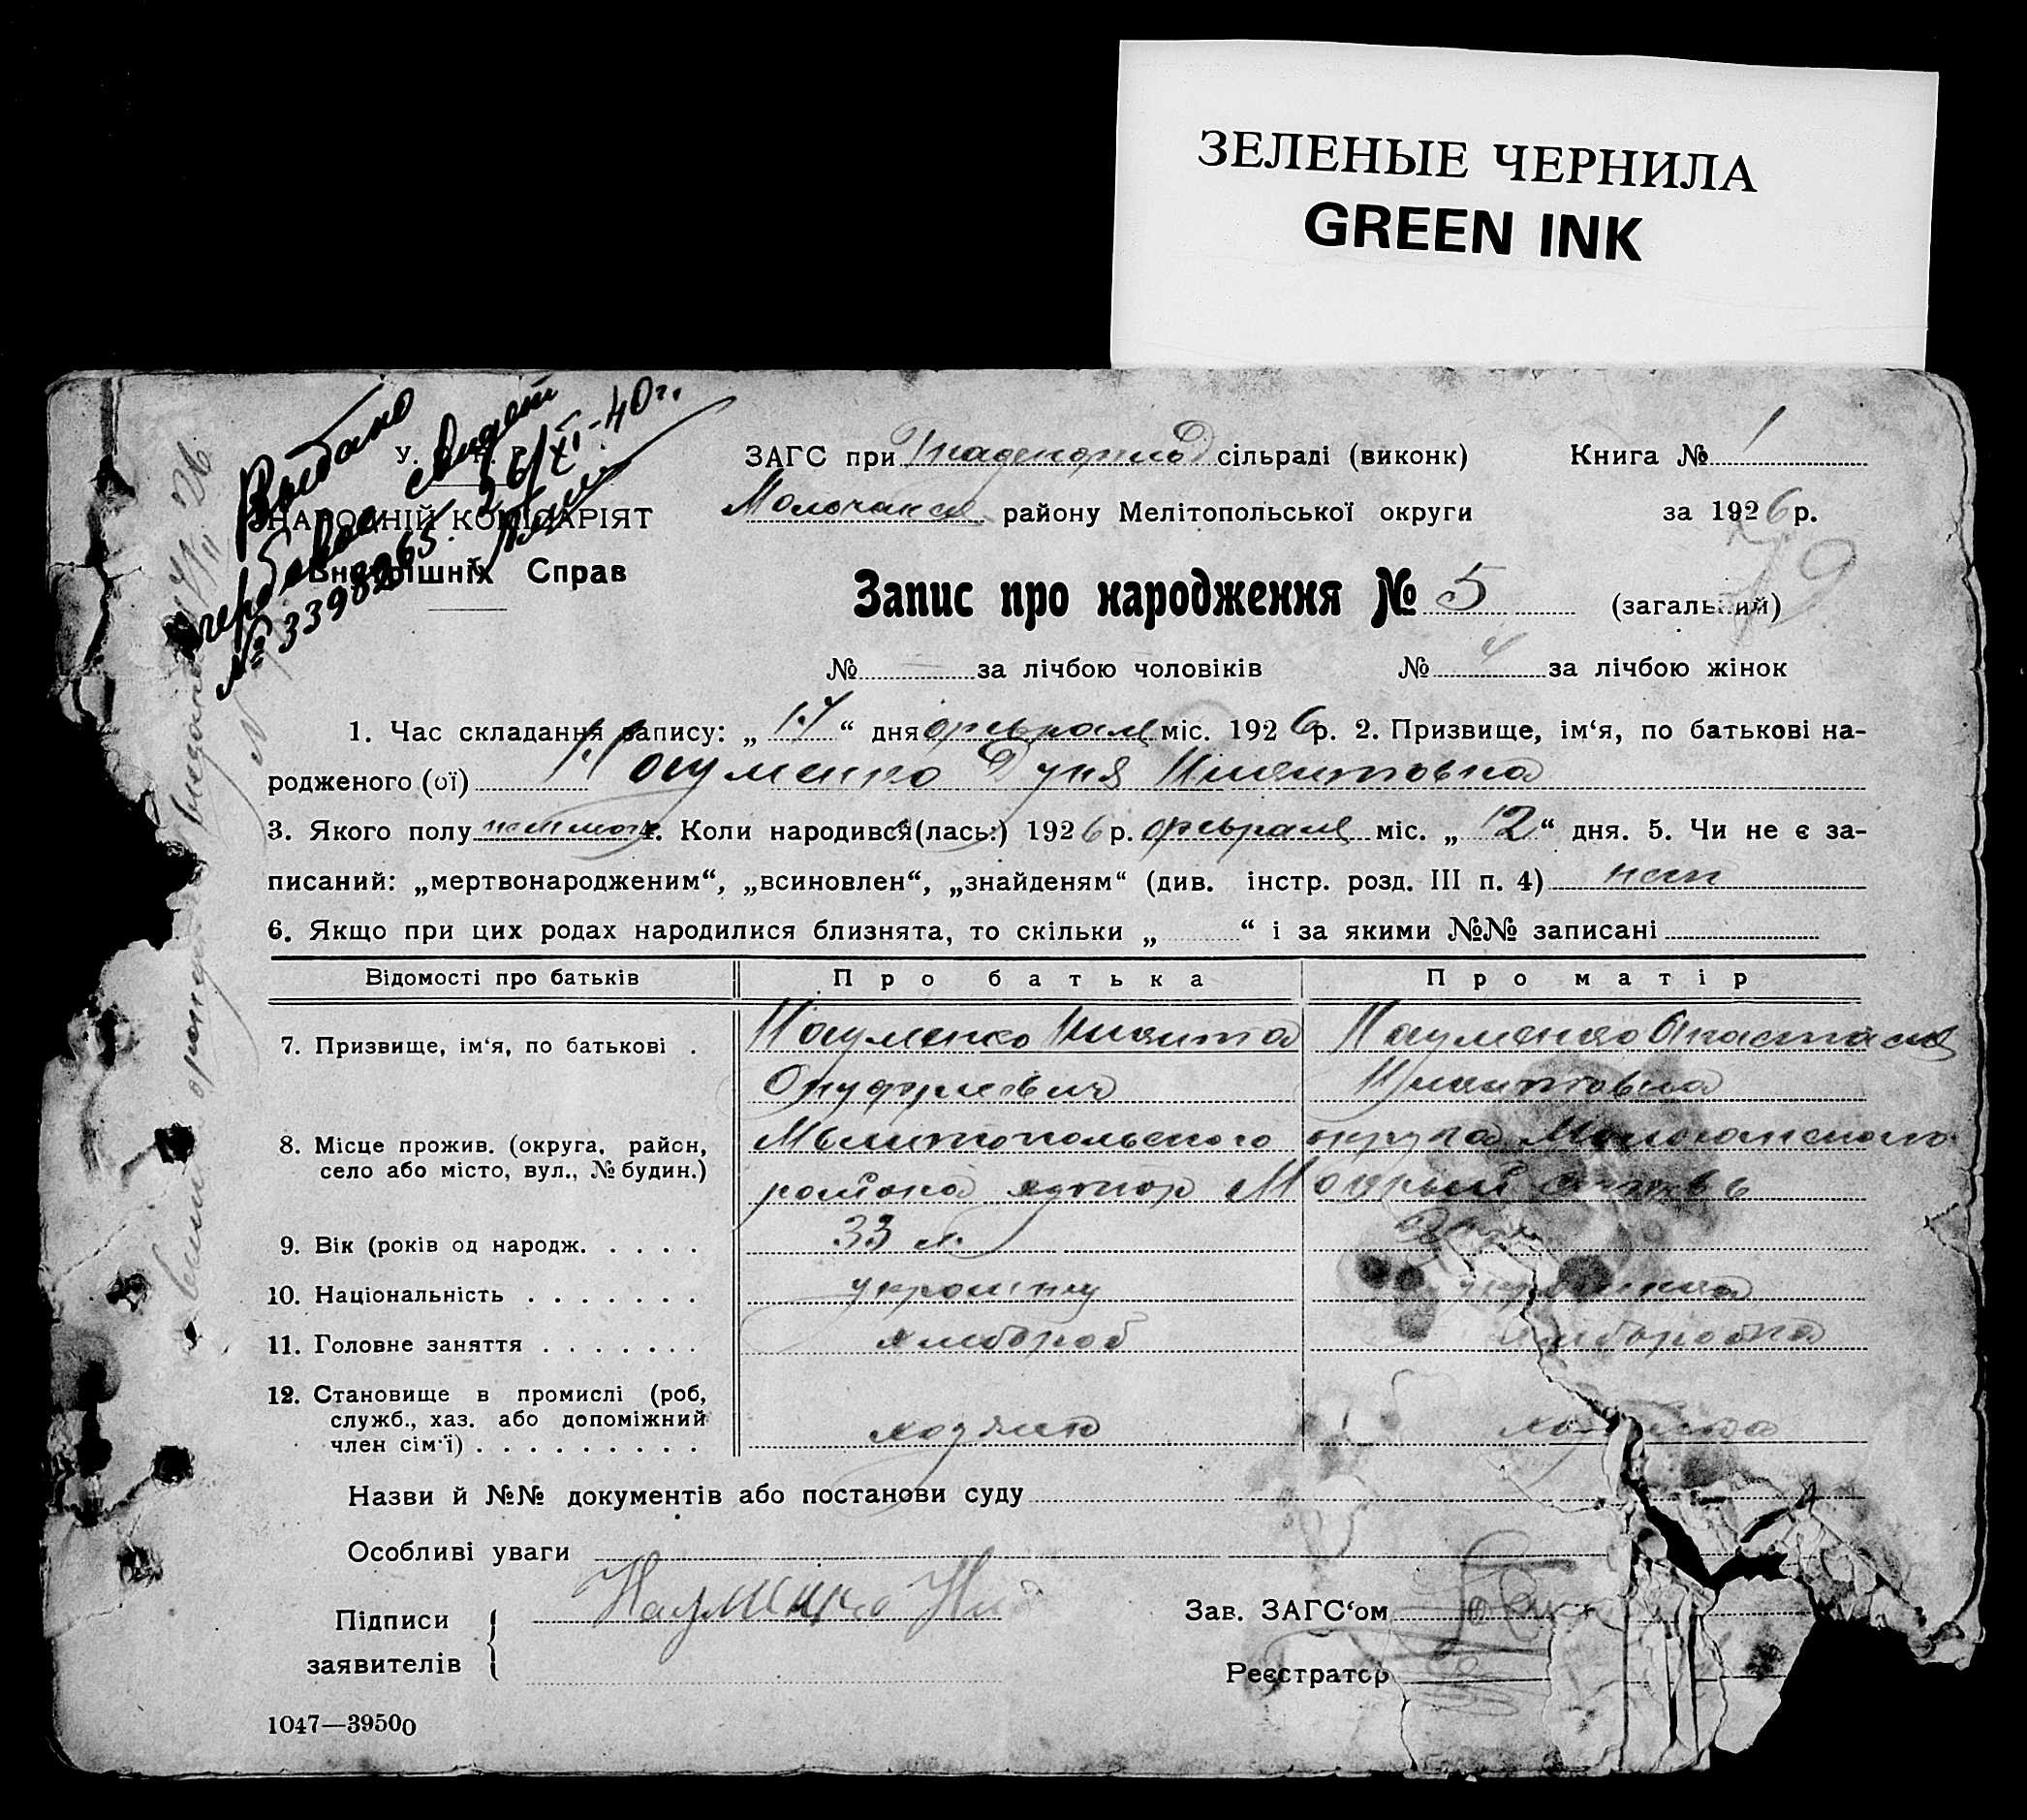 ЗЕЛЕНЫЕ ЧЕРНИЛА
GREEN INK
Выдано свидет
26/XI-40 г.
№ 3398265
У.
НАРОДНІЙ КОМІСАРІЯТ
Внутрішніх Справ
ЗАГС при Гнаденфельд сільраді (виконк) Книга № 1
Молочанск району Мелітопольської округи за 1926 р.
79
Запис про народження № 5 (загальний)
№ — за лічбою чоловіків № 4 за лічбою жінок
1. Час складання запису: „17“ дня февраля міс. 1926 р. 2. Призвище, ім‘я, по батькові на-
родженого (ої) Науменко Дуня Никитовна
3. Якого полу 4. Коли народився (лась:) 1926 р. февраля міс. „12“ дня. 5. Чи не є за-
писаний: „мертвонародженим“, „всиновлен“, „знайденям“ (див. інстр. розд. III п. 4) нет
6. Якщо при цих родах народилися близнята, то скільки „ “ і за якими №№ записані
Відомості про батьків Про батька Про матір
7. Призвище, ім‘я, по батькові . Науменко Никита Науменко Анастасия
Онуфриевич Никитовна
8. Місце прожив. (округа, район, Мелитопольского округа Молочанского
село або місто, вул., № будин.) района хутор Мокрый
9. Вік (років од народж. . . . . 33 л.
10. Національність . . . . . . . украинец украинка
11. Головне заняття . . . . . . . хлебороб хлеборобка
12. Становище в промислі (роб,
служб., хаз. або допоміжний
член сім‘ї) . . . . . . . . . хозяин хозяйка
Назви й №№ документів або постанови суду
Особливі уваги
Підписи Науменко Ник Зав. ЗАГС‘ом
заявителів Реєстратор
1047—39500